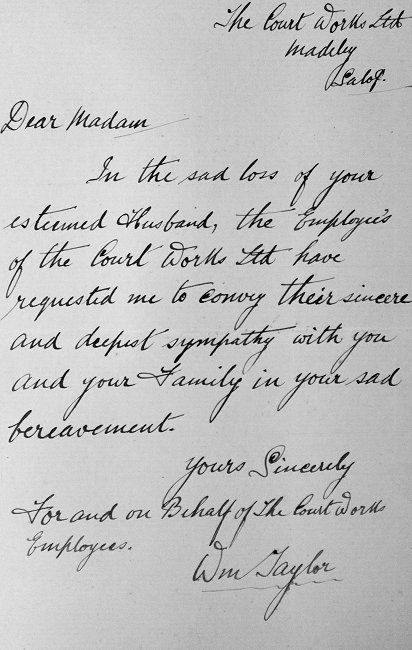 The Court Works Ltd
Madeley
Salop.
Dear Madam
In the sad loss of your
esteemed Husband, the Employees
of the Court Works Ltd have
requested me to convey their sincere
and deepest sympathy with you
and your Family in your sad
bereavement.
Yours Sincerely
For and on Behalf of The Court Works
Employees.
Wm Taylor